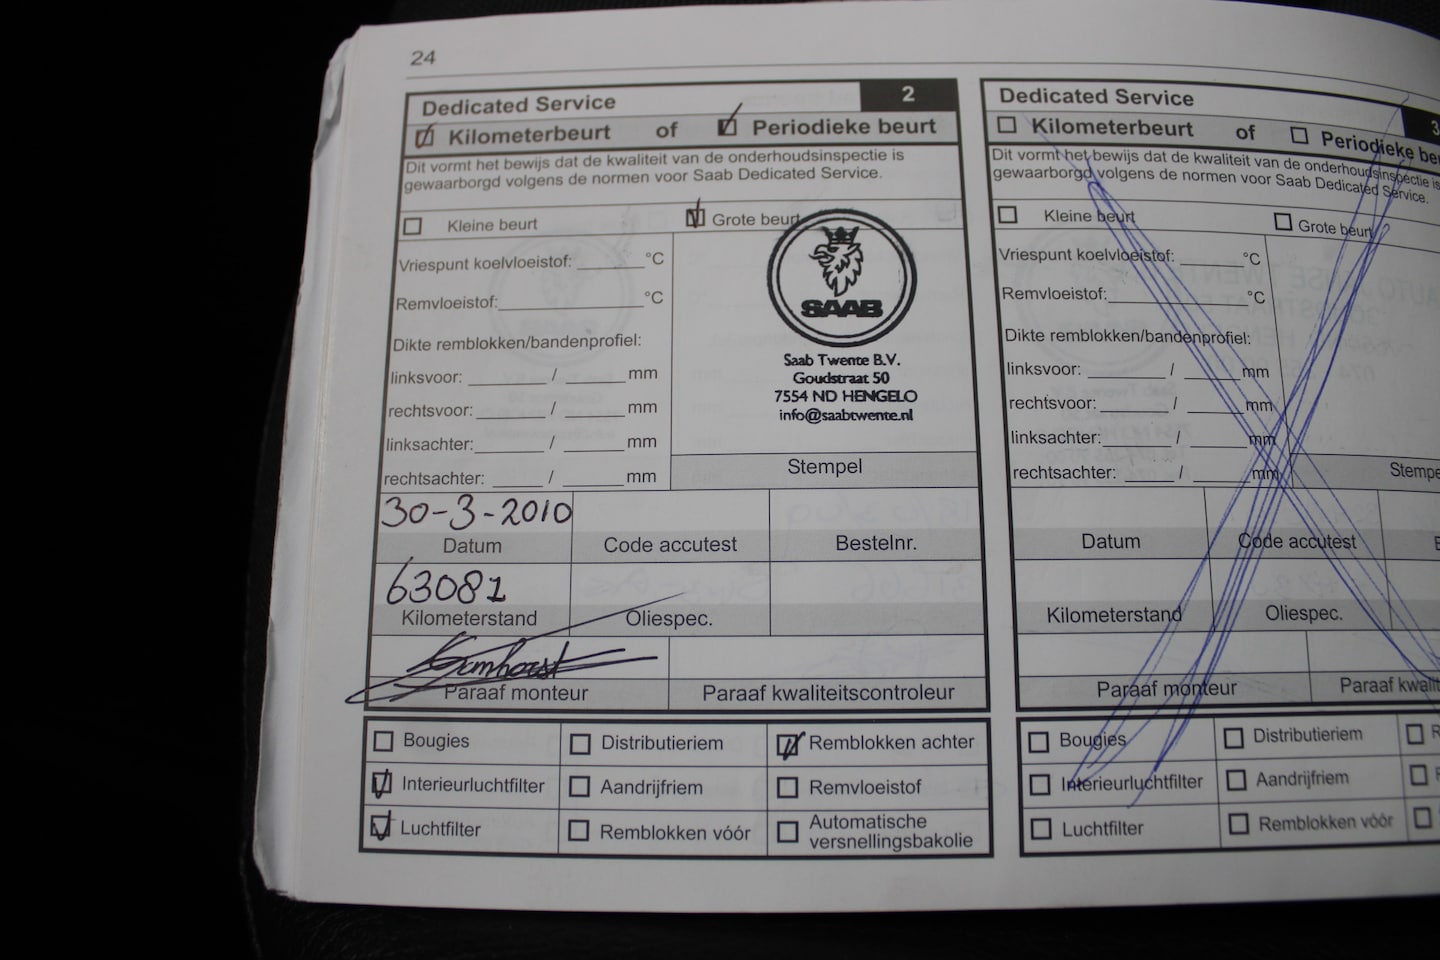 24
Dedicated Service 2
Kilometerbeurt of Periodieke beurt
Dit vormt het bewijs dat de kwaliteit van de onderhoudsinspectie is
gewaarborgd volgens de normen voor Saab Dedicated Service.
Kleine beurt Grote beurt
Vriespunt koelvloeistof: °C
Remvloeistof: °C
Dikte remblokken/bandenprofiel:
linksvoor: / mm
rechtsvoor: / mm
linksachter: / mm
rechtsachter: / mm
SAAB
Saab Twente B.V.
Goudstraat 50
7554 ND HENGELO
info@saabtwente.nl
Stempel
30-3-2010
Datum Code accutest Bestelnr.
63081
Kilometerstand Oliespec.
Paraaf monteur Paraaf kwaliteitscontroleur
Bougies Distributieriem Remblokken achter
Interieurluchtfilter Aandrijfriem Remvloeistof
Luchtfilter Remblokken vóór Automatische
versnellingsbakolie
Dedicated Service 3
Kilometerbeurt of Periodieke beu
Dit vormt het bewijs dat de kwaliteit van de onderhoudsinspectie is
gewaarborgd volgens de normen voor Saab Dedicated Service.
Kleine beurt Grote beurt
Vriespunt koelvloeistof: °C
Remvloeistof: °C
Dikte remblokken/bandenprofiel:
linksvoor: / mm
rechtsvoor: / mm
linksachter: / mm
rechtsachter: / mm
Stempe
Datum Code accutest B
Kilometerstand Oliespec.
Paraaf monteur Paraaf kwalit
Bougies Distributieriem R
Interieurluchtfilter Aandrijfriem
Luchtfilter Remblokken vóór